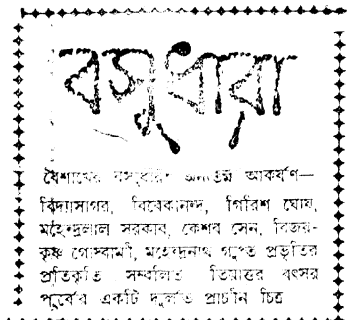 বসুধারা
বৈশাখের বসুধারার অন্যতম আকর্ষণ—
বিদ্যাসাগর, বিবেকানন্দ, গিরিশ ঘোষ,
মহেন্দ্রলাল সরকার, কেশব সেন, বিজয়-
কৃষ্ণ গোস্বামী, মহেন্দ্রনাথ গুপ্ত প্রভৃতির
প্রতিকৃতি সম্বলিত তিয়াত্তর বৎসর
পূর্বের একটি দুর্লভ প্রাচীন চিত্র